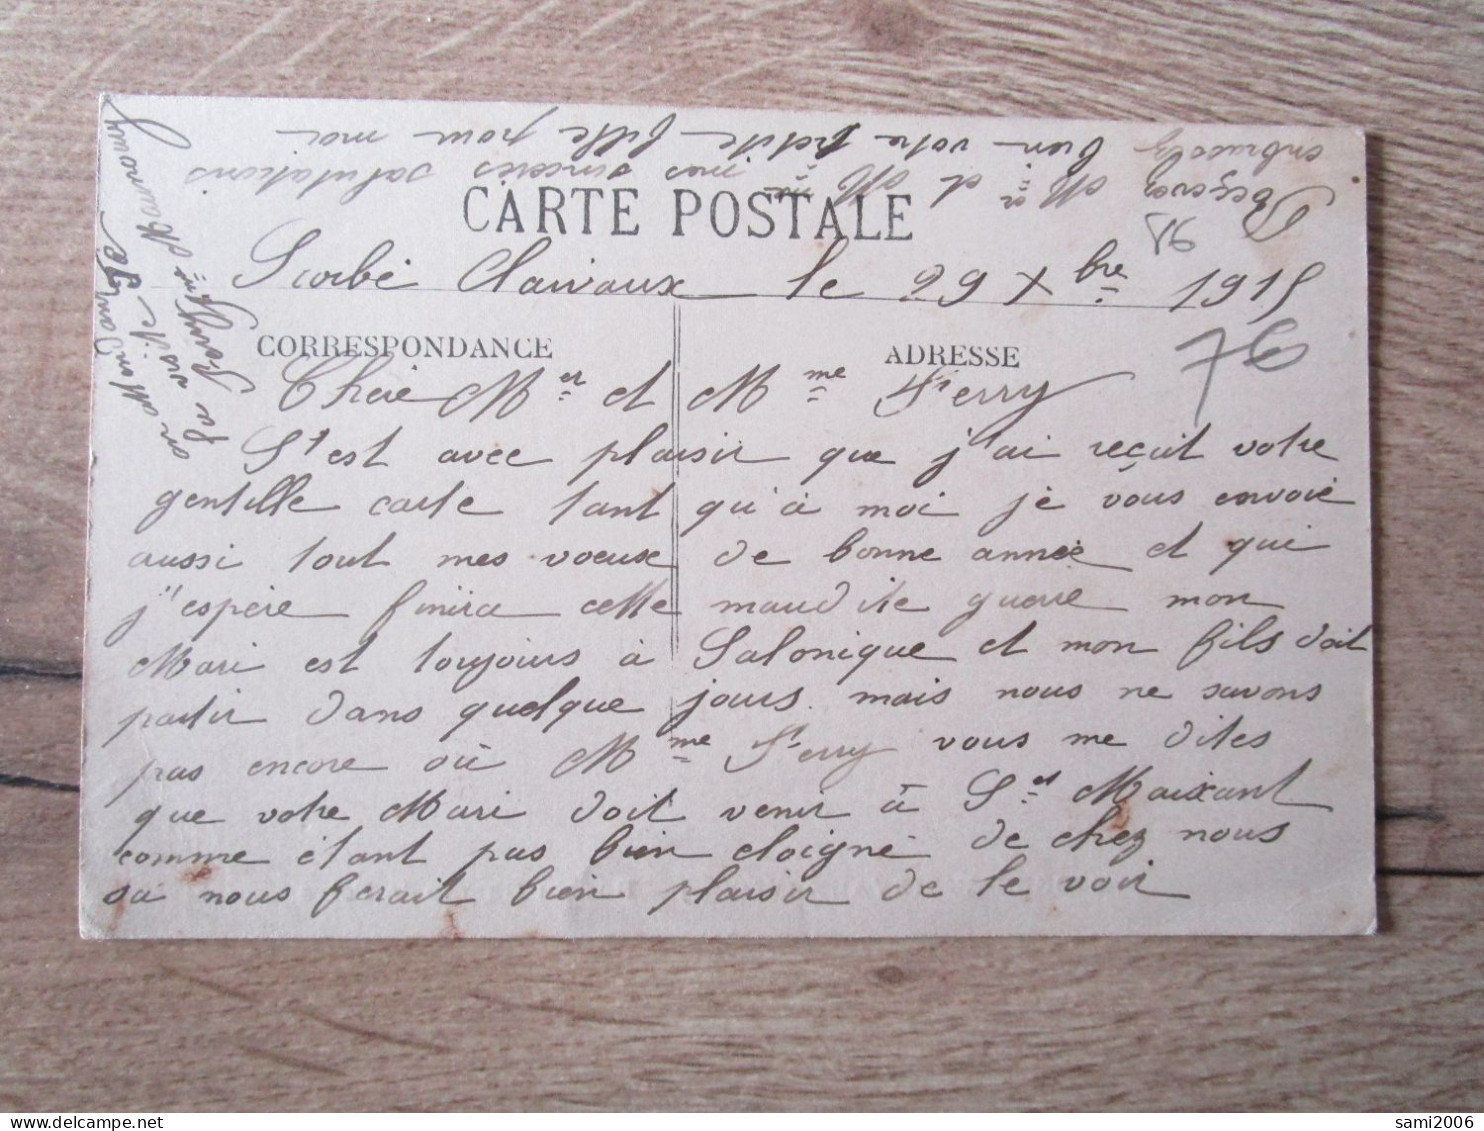 CARTE POSTALE
Scorbé Clairvaux le 29 Xbre 1915
CORRESPONDANCE
ADRESSE
76
Chère Mer et Mme Ferry
S'est avec plaisir que j'ai reçuit votre
gentille carte tant qu'à moi je vous envoie
aussi tout mes voeux de bonne année et qui
j'espére finira cette maudite guerre mon
Mari est toujours à Salonique et mon fils doit
partir dans quelque jours mais nous ne savons
pas encore où Mme Ferry vous me dites
que votre Mari doit venir à St Maixant
comme étant pas bien eloigné de chez nous
sa nous ferait bien plaisir de le voir
en attendant
sa visite
Recevez Mr et Mme mes sincères salutations
embrassez bien votre petite fille pour moi
95
sami2006